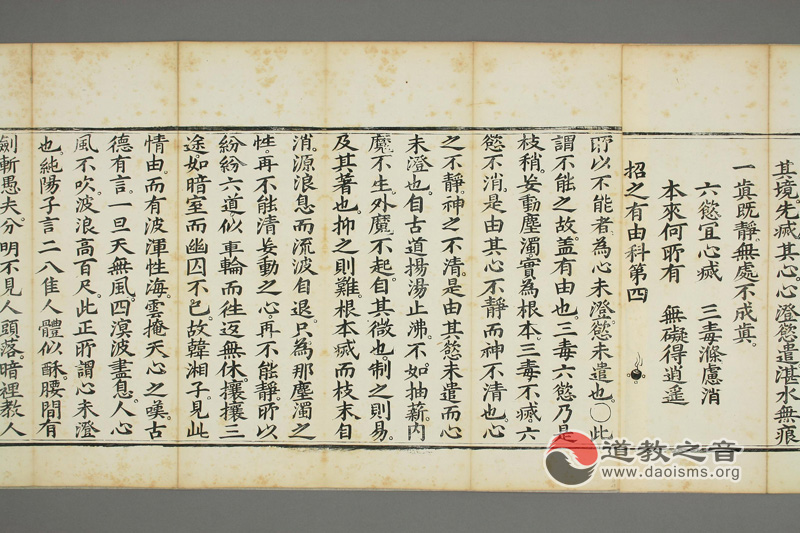 其境先滅其心心澄慾遣湛水無痕
一眞既靜無處不成眞。
六慾宜心滅　三毒滌慮消
本來何所有　無礙得逍遥
招之有由科第四
所以不能者為心未澄慾未遣也。○此
謂不能之故。盖有由也。三毒六慾乃是
枝稍。妄動塵濁實為根本。三毒不滅。六
慾不消。是由其心不靜而神不清也。心
之不靜。神之不清。是由其慾未遣而心
未澄也。自古道揚湯止沸。不如抽薪。内
魔不生。外魔不起。自其微也。制之則易。
及其著也。抑之則難。根本滅而枝末自
消。源浪息而流波自退。只為那塵濁之
性。再不能清。妄動之心。再不能靜。所以
紛紛六道。似車輪而徃返無休。攘攘三
途。如暗室而幽囚不已。故韓湘子。見此
情由。而有波渾性海。雲掩天心之嘆。古
德有言。一旦天無風。四溟波盡息。人心
風不吹。波浪高百尺。此正所謂心未澄
也。純陽子言二八佳人體似酥。腰間有
劍斬愚夫。分明不見人頭落。暗裡教人
道教之音
www.daoisms.org